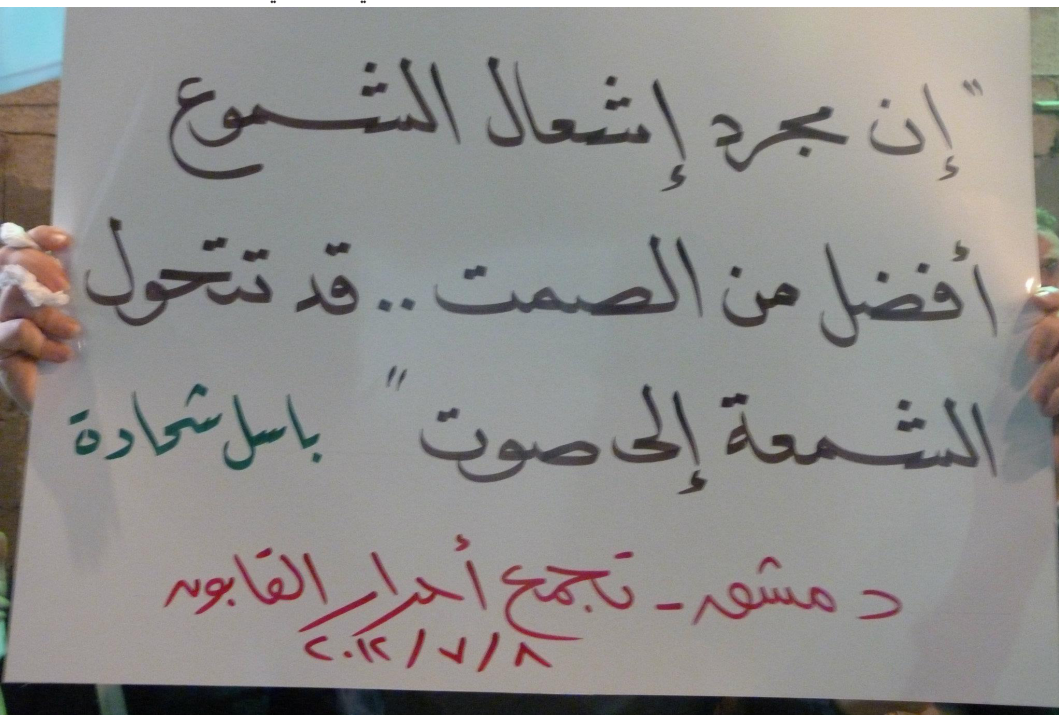 "إن مجرد إشعال الشموع
أفضل من الصمت .. قد تتحول
الشمعة إلى صوت" باسل شحادة
دمشق - تجمع أحرار القابون
٢٠١٢/٧/٨